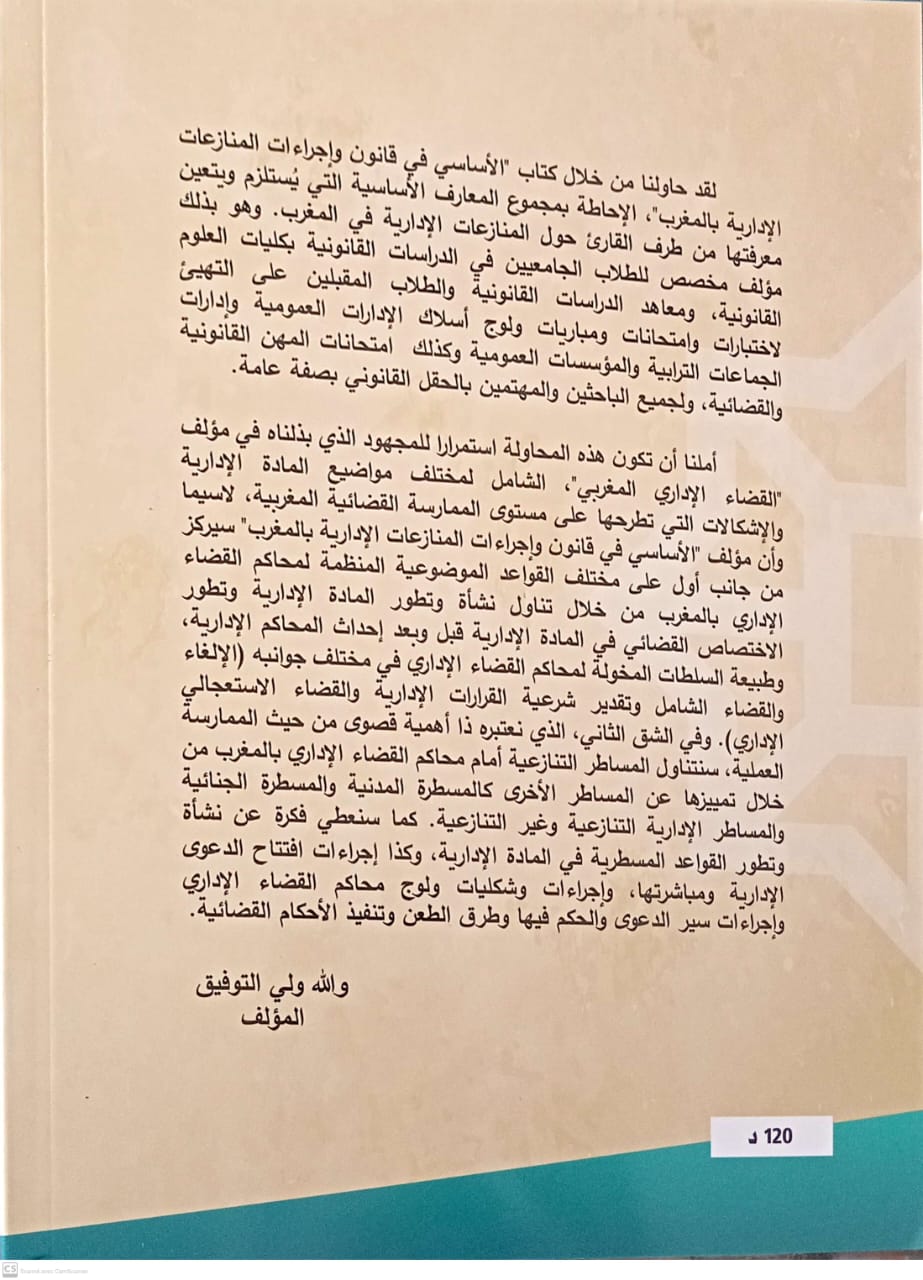 لقد حاولنا من خلال كتاب "الأساسي في قانون وإجراءات المنازعات
الإدارية بالمغرب"، الإحاطة بمجموع المعارف الأساسية التي يُستلزم ويتعين
معرفتها من طرف القارئ حول المنازعات الإدارية في المغرب. وهو بذلك
مؤلف مخصص للطلاب الجامعيين في الدراسات القانونية بكليات العلوم
القانونية، ومعاهد الدراسات القانونية والطلاب المقبلين على التهيئ
لاختبارات وامتحانات ومباريات ولوج أسلاك الإدارات العمومية وإدارات
الجماعات الترابية والمؤسسات العمومية وكذلك امتحانات المهن القانونية
والقضائية، ولجميع الباحثين والمهتمين بالحقل القانوني بصفة عامة.
أملنا أن تكون هذه المحاولة استمرارا للمجهود الذي بذلناه في مؤلف
"القضاء الإداري المغربي"، الشامل لمختلف مواضيع المادة الإدارية
والإشكالات التي تطرحها على مستوى الممارسة القضائية المغربية، لاسيما
وأن مؤلف "الأساسي في قانون وإجراءات المنازعات الإدارية بالمغرب" سيركز
من جانب أول على مختلف القواعد الموضوعية المنظمة لمحاكم القضاء
الإداري بالمغرب من خلال تناول نشأة وتطور المادة الإدارية وتطور
الاختصاص القضائي في المادة الإدارية قبل وبعد إحداث المحاكم الإدارية،
وطبيعة السلطات المخولة لمحاكم القضاء الإداري في مختلف جوانبه (الإلغاء
والقضاء الشامل وتقدير شرعية القرارات الإدارية والقضاء الاستعجالي
الإداري). وفي الشق الثاني، الذي نعتبره ذا أهمية قصوى من حيث الممارسة
العملية، سنتناول المساطر التنازعية أمام محاكم القضاء الإداري بالمغرب من
خلال تمييزها عن المساطر الأخرى كالمسطرة المدنية والمسطرة الجنائية
والمساطر الإدارية التنازعية وغير التنازعية. كما سنعطي فكرة عن نشأة
وتطور القواعد المسطرية في المادة الإدارية، وكذا إجراءات افتتاح الدعوى
الإدارية ومباشرتها، وإجراءات وشكليات ولوج محاكم القضاء الإداري
وإجراءات سير الدعوى والحكم فيها وطرق الطعن وتنفيذ الأحكام القضائية.
والله ولي التوفيق
المؤلف
120 د
CS Scanné avec CamScanner